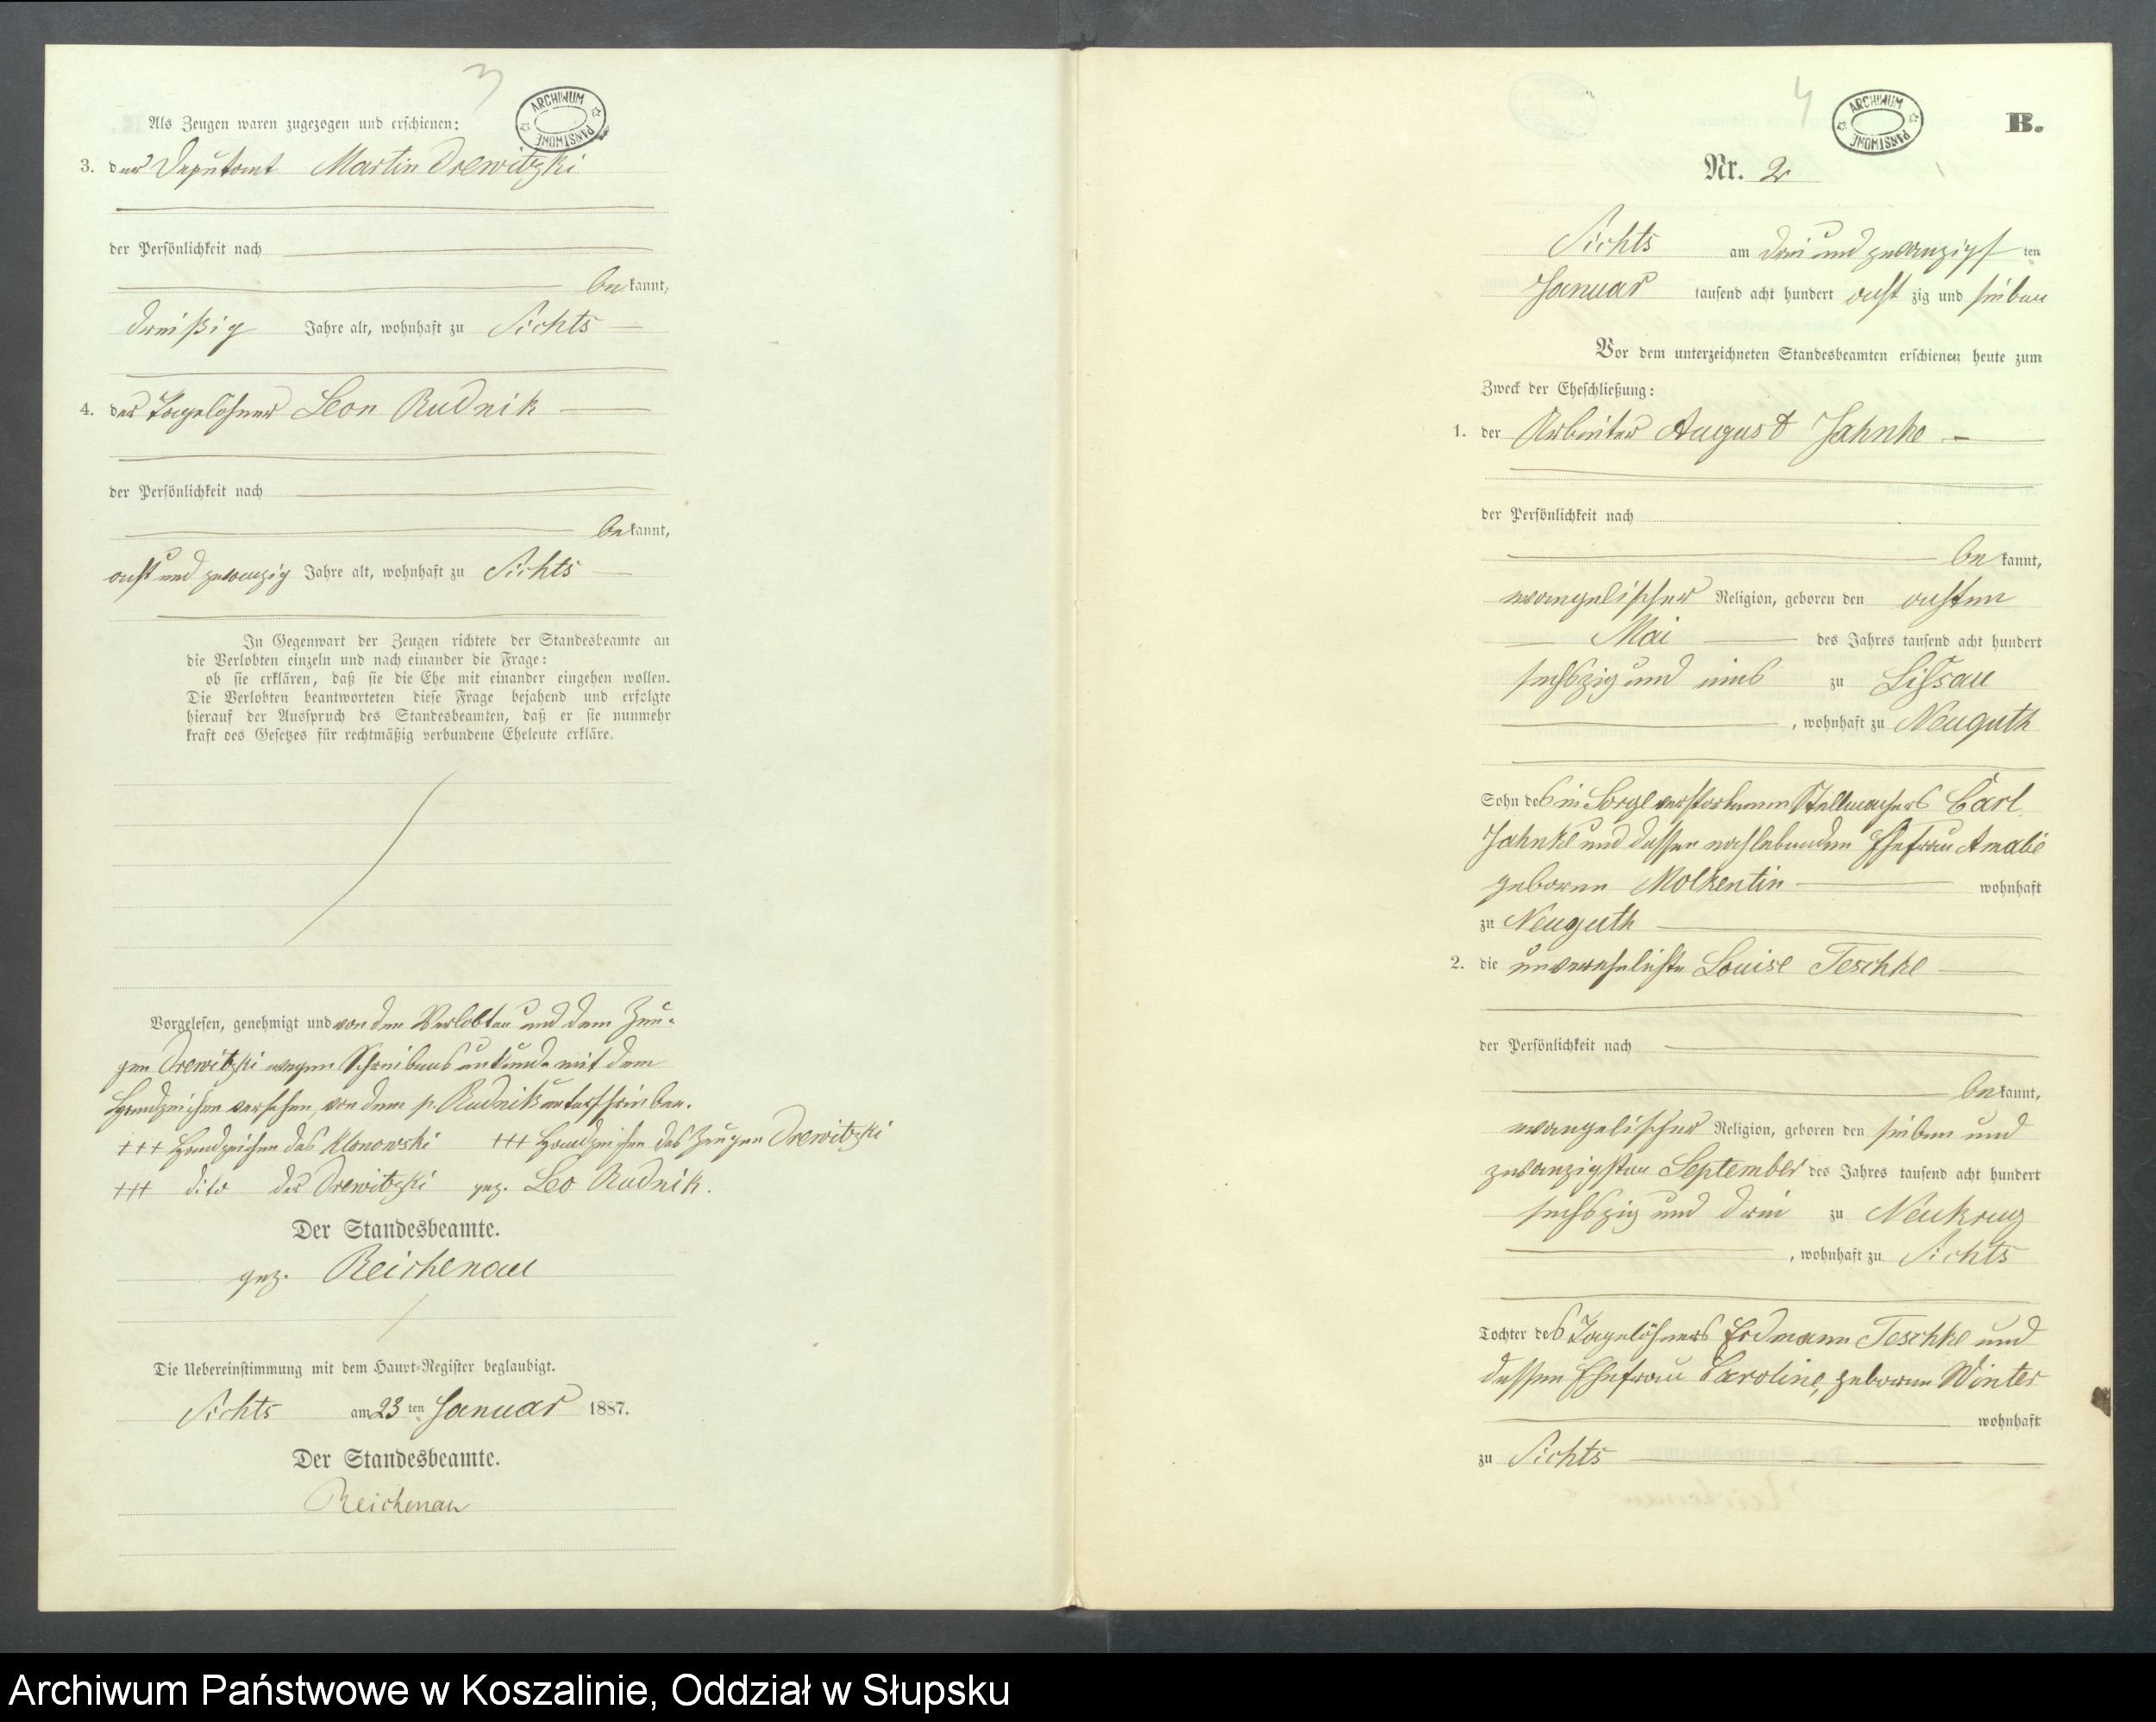 3
ARCHIWUM PAŃSTWOWE
Als Zeugen waren zugezogen und erschienen:
3. der Deputant Martin Drewitzki
der Persönlichkeit nach
bekannt,
dreißig Jahre alt, wohnhaft zu Sichts
4. der Tagelöhner Leon Rudnik
der Persönlichkeit nach
bekannt,
acht und zwanzig Jahre alt, wohnhaft zu Sichts
In Gegenwart der Zeugen richtete der Standesbeamte an
die Verlobten einzeln und nach einander die Frage:
ob sie erklären, daß sie die Ehe mit einander eingehen wollen.
Die Verlobten beantworteten diese Frage bejahend und erfolgte
hierauf der Ausspruch des Standesbeamten, daß er sie nunmehr
kraft des Gesetzes für rechtmäßig verbundene Eheleute erkläre.
Vorgelesen, genehmigt und von den Verlobten und dem Zeu-
gen Drewitzki wegen Schreibensunkunde mit dem
Handzeichen versehen, von dem p. Rudnik unterschrieben.
+++ Handzeichen des Klonowski +++ Handzeichen des Zeugen Drewitzki
+++ dito der Drewitzki gez. Leo Rudnik.
Der Standesbeamte.
gez. Reichenau
Die Uebereinstimmung mit dem Haupt-Register beglaubigt.
Sichts am 23 ten Januar 1887.
Der Standesbeamte.
Reichenau
4
ARCHIWUM PAŃSTWOWE
B.
Nr. 2
Sichts am drei und zwanzigst ten
Januar tausend acht hundert acht zig und sieben
Vor dem unterzeichneten Standesbeamten erschienen heute zum
Zweck der Eheschließung:
1. der Arbeiter August Jahnke
der Persönlichkeit nach
bekannt,
evangelischer Religion, geboren den achten
Mai des Jahres tausend acht hundert
sechszig und eins zu Lissau
, wohnhaft zu Neuguth
Sohn des in Sorge verstorbenen Stellmachers Carl
Jahnke und dessen nachlebenden Ehefrau Amalie
geborene Molkentin wohnhaft
zu Neuguth
2. die unverehelichte Louise Teschke
der Persönlichkeit nach
bekannt,
evangelischer Religion, geboren den sieben und
zwanzigsten September des Jahres tausend acht hundert
sechszig und drei zu Neukrug
, wohnhaft zu Sichts
Tochter des Tagelöhners Erdmann Teschke und
dessen Ehefrau Caroline, geborene Winter
wohnhaft
zu Sichts
Archiwum Państwowe w Koszalinie, Oddział w Słupsku